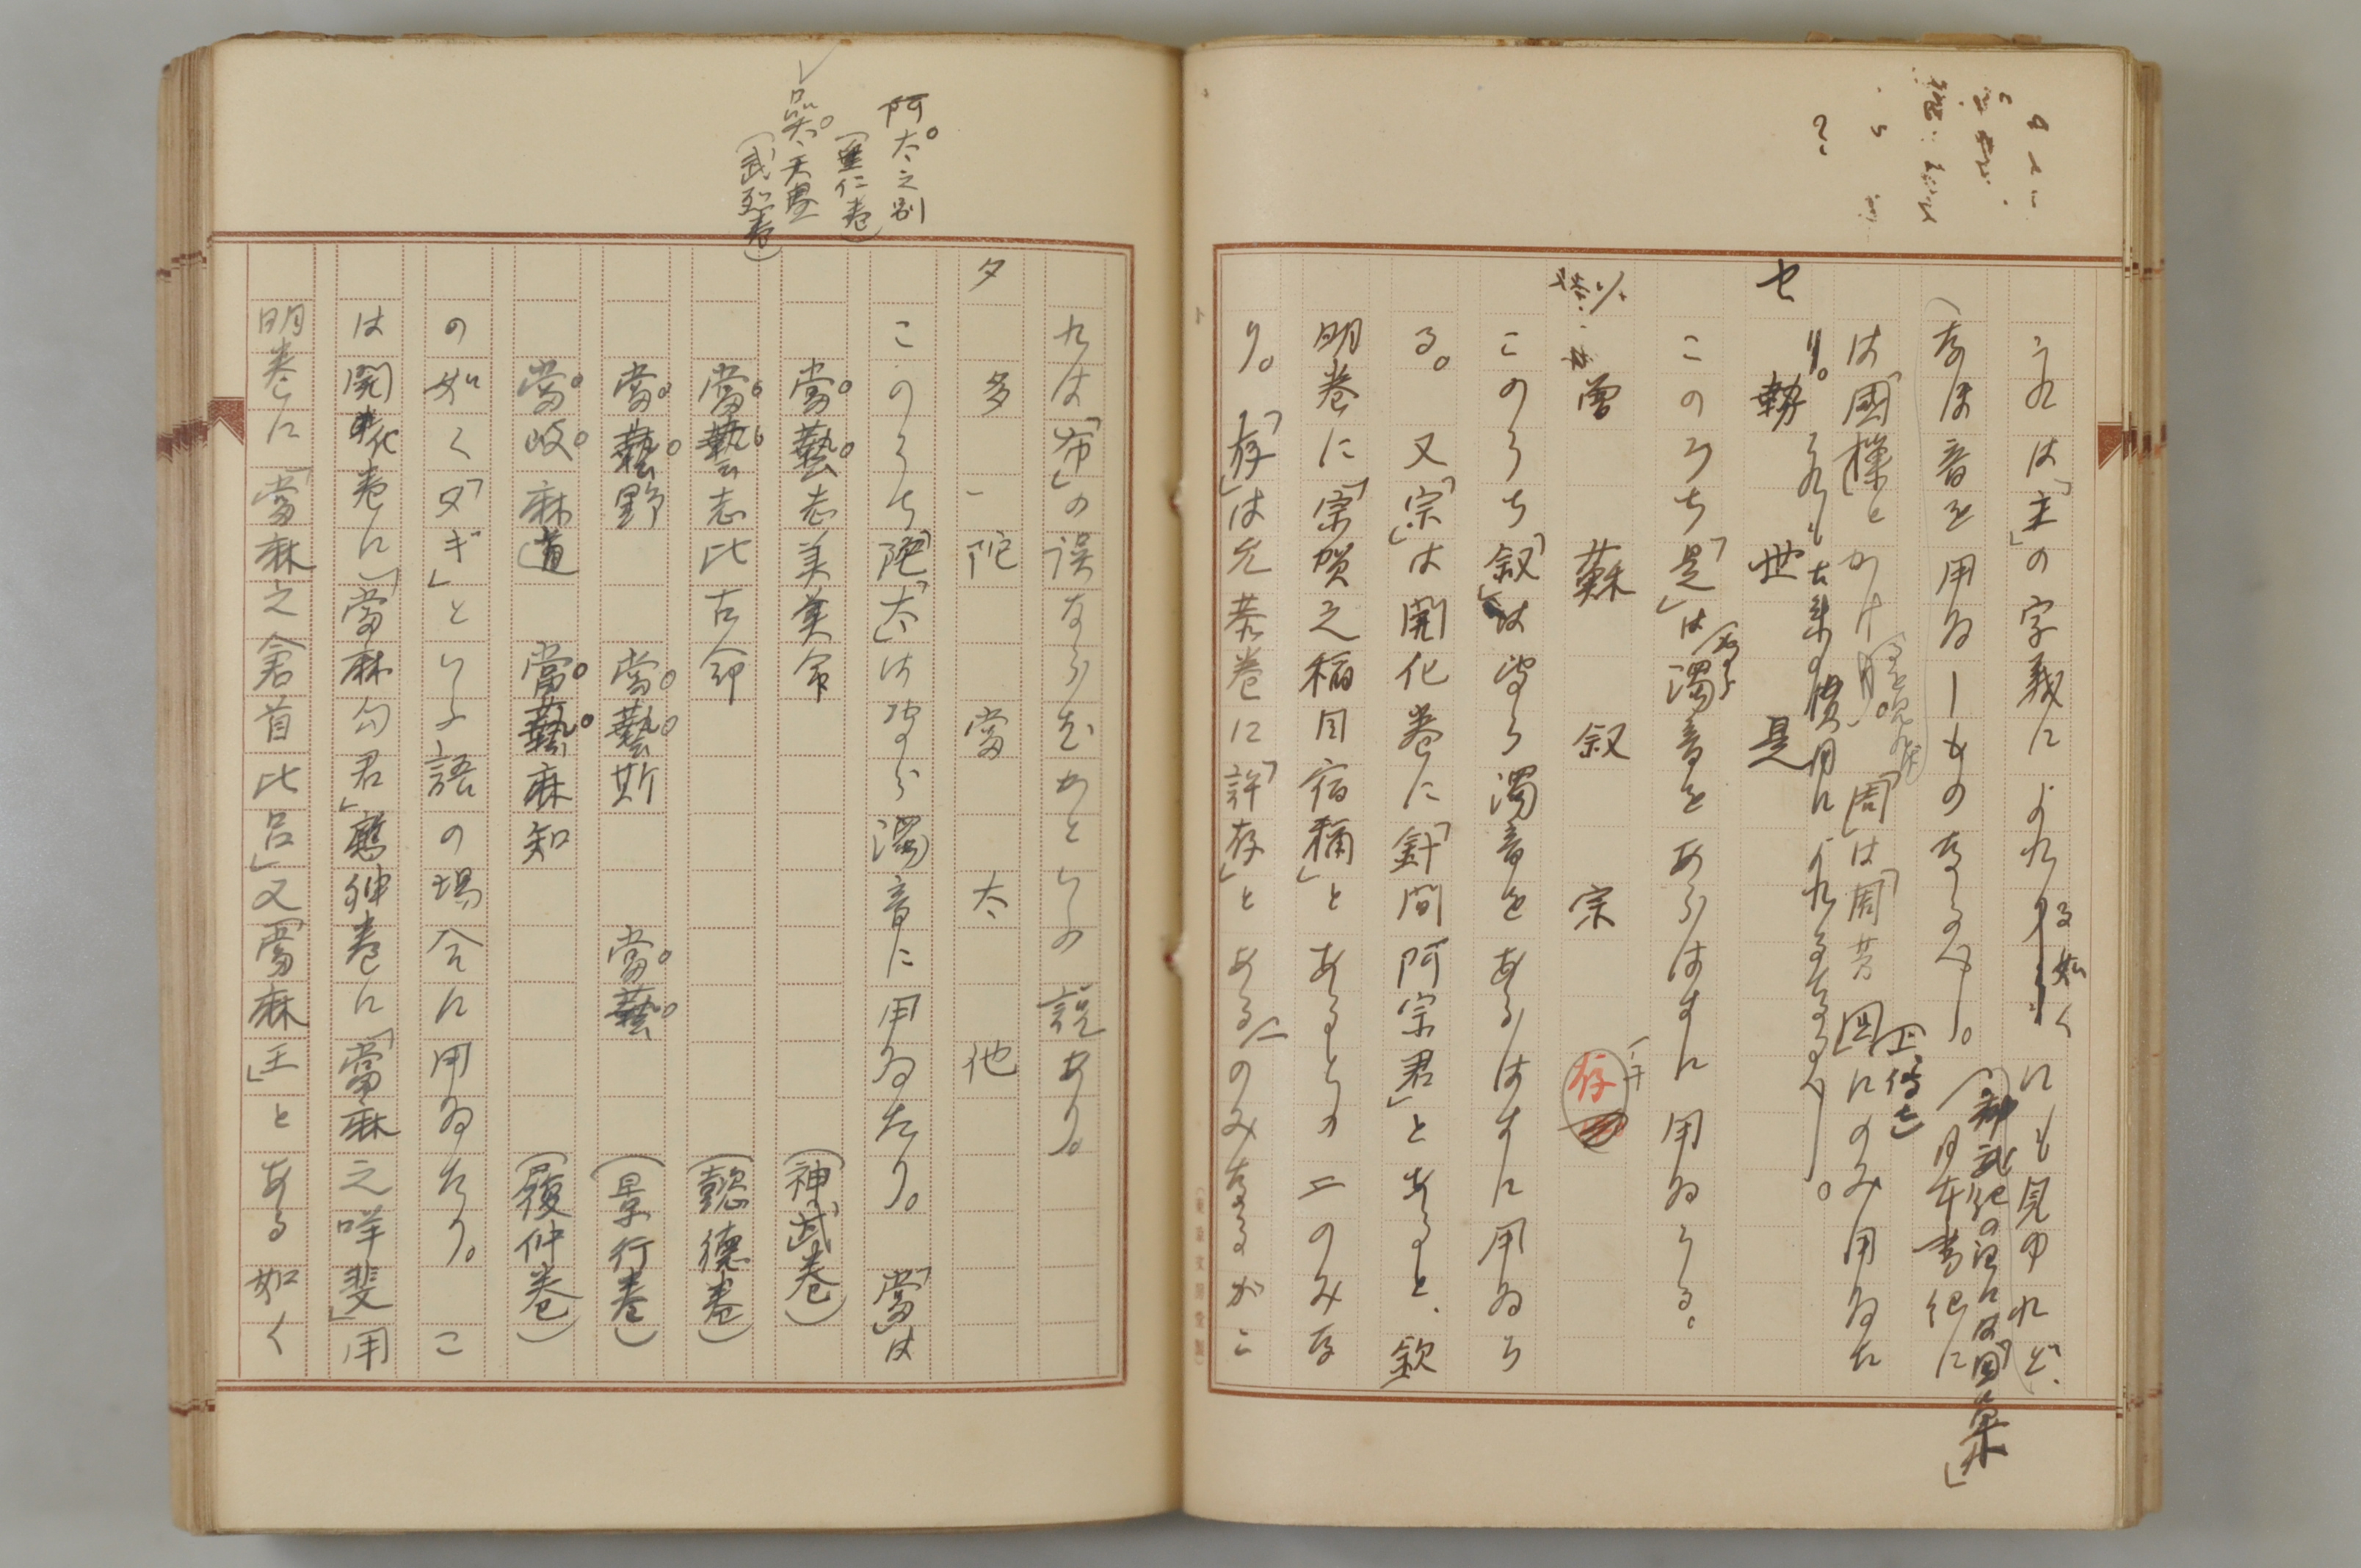 これは「主」の字義によれる如くにも見ゆれど、
なほ音を用ゐしものなるべし。
(神武紀の注には「国巣」
日本書紀に
は「國樔」とかけり。「周」は「周芳国」にのみ用ゐた
り。これも古来の慣用によれるなるべし。
セ 勢 世 是
このうち「是」は濁音をあらはすに用ゐらる。
曽 蘇 叙 宗 存
このうち「叙」は専ら濁音をあらはすに用ゐら
る。又「宗」は開化巻に「針間阿宗君」とあると、欽
明巻に「宗賀之稲目宿禰」とあるとの二のみな
り。「存」は允恭巻に「許存」とある一のみなるがこ
れは「布」の誤ならむかといふ説あり。
タ 多 陀 當 太 他
このうち「陀」「太」は専ら濁音に用ゐたり。「當」は
當藝志美美命 (神武巻)
當藝志比古命 (懿德巻)
當藝野 當藝斯 當藝 (景行巻)
當岐麻道 當藝麻知 (履仲巻)
の如く「タギ」といふ語の場合に用ゐたり。こ
は開化巻に「當麻勾君」應神巻に「當麻之咩斐」用
明巻に「當麻之倉首比呂」又「當麻王」とある如く
阿太之別
(垂仁巻)
品太天皇
(武烈巻)